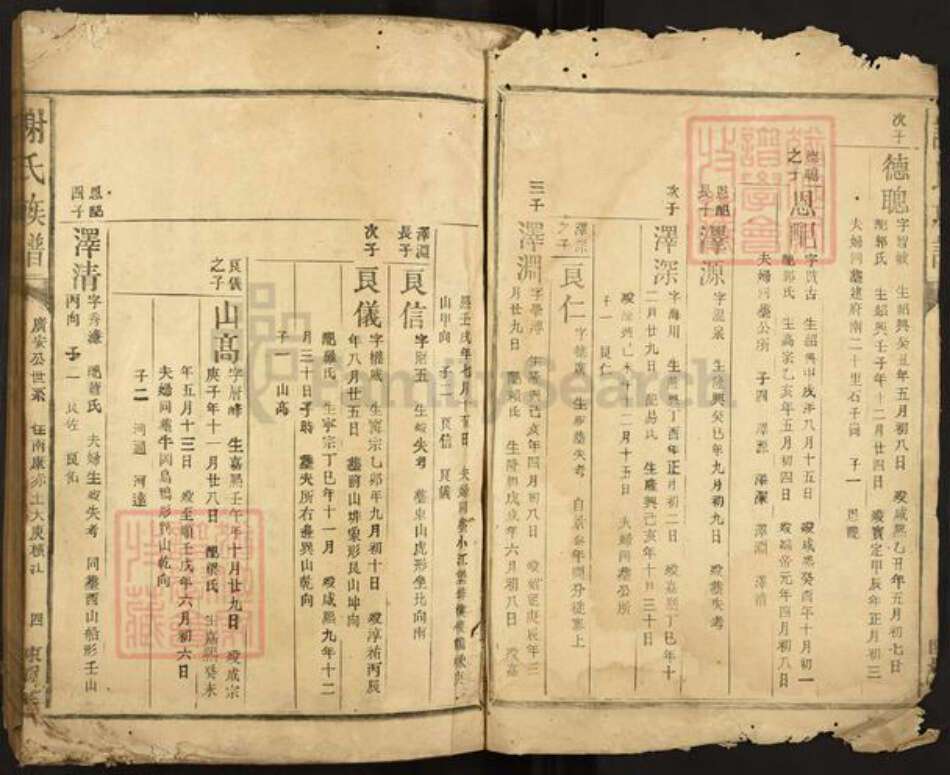 次子
德聰
字智敏 生紹興癸丑年五月初八日 歿咸熙乙丑年五月初七日
配郭氏 生紹興壬子年十二月廿四日 歿寶定甲辰年正月初三
夫婦同塟建府南二十里石子岡 子一 恩配
德聰之子
恩配
字敦古 生紹興甲戌年八月十五日 歿咸熙癸酉年十月初一
配郭氏 生高宗乙亥年五月初四日 歿端帝元年四月初八日
夫婦同塟公所 子四 澤源 澤深 澤淵 澤清
恩配長子
澤源
字思泉 生隆興癸巳年九月初九日 歿塟失考
次子
澤深
字海用 生淳熙丁酉年正月初二日 歿嘉熙丁巳年十
二月廿九日 配易氏 生隆興己亥年十月三十日
年十二月十五日 夫婦同塟公所
子一 良仁
澤深之子
良仁
字德廣 生歿塟失考
三子
澤淵
字學溥 生淳熙己亥年四月初八日 歿紹定庚辰年三
月廿九日 配賴氏 生隆興戊戌年六月初八日 歿嘉
熙壬戌年七月 五日 夫婦同塟小江
山甲向 子二 良信 良儀
澤淵長子
良信
字殿五 生歿失考 塟東山虎形坐北向南
次子
良儀
字權威 生寧宗乙卯年九月初十日 歿淳祐丙辰
年八月廿五日 塟前山排象形艮山坤向
配羅氏 生寧宗丁巳年十一月 歿咸熙九年十二
月三十日子時 塟夫所右邊巽山乾向
子一 山高
良儀之子
山高
字層峰 生嘉熙壬午年十月廿九日 歿咸宗
庚子年十一月廿八日 配梁氏 生嘉熙癸未
年五月十三日 歿至順壬戌年六月初六日
夫婦同塟牛岡烏鴨形巽山乾向
子二 河通 河達
恩配四子
澤清
字秀濂 配曾氏 夫婦生歿失考 同塟西山船形壬山
丙向 子二 良佐 良佑
謝氏族譜
廣安公世系 江南康赤土大庾橫江
四
FamilySearch